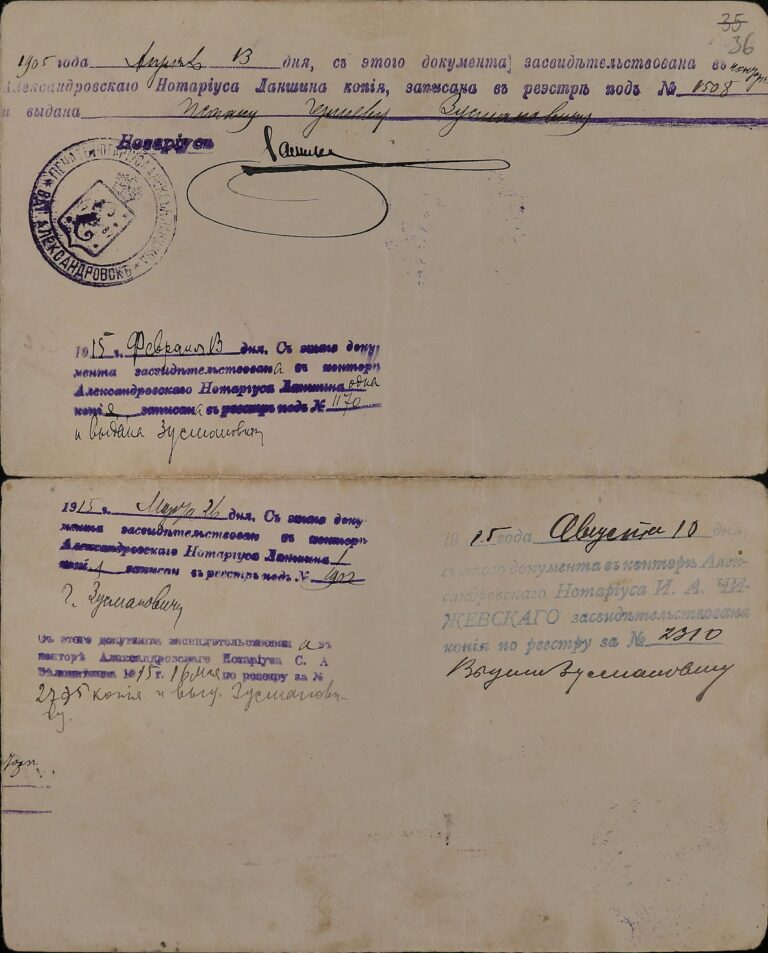 35
36
1905 года Апреля 13 дня, съ этого документа засвидѣтельствована въ конторѣ
Александровскаго Нотаріуса Ланшина копія, записана въ реэстръ подъ № 1508
и выдана Зусмановичу
Нотаріусъ Ланшинъ
АЛЕКСАНДРОВСКЪ
1915 г. Февраля 13 дня. Съ этого доку-
мента засвидѣтельствована въ конторѣ
Александровскаго Нотаріуса Ланшина одна
копія, записана въ реестръ подъ № 1170
и выдана Зусмановичу
1915 г. Марта 26 дня. Съ этого доку-
мента засвидѣтельствован въ конторѣ
Александровскаго Нотаріуса Ланшина 1
записан въ реестръ подъ №
г. Зусмановичу
Съ этого документа засвидѣтельствован а въ
конторѣ Александровскаго Нотаріуса С. А
1915 г. 16 мая по реестру за №
2795 копія и выд. Зусманови-
чу.
1915 года Августа 10 дня
съ этого документа въ конторѣ Алек-
сандровскаго Нотаріуса И. А. ЧИ-
ЖЕВСКАГО засвидѣтельствована
копія по реестру за № 2310
Выдана Зусмановичу